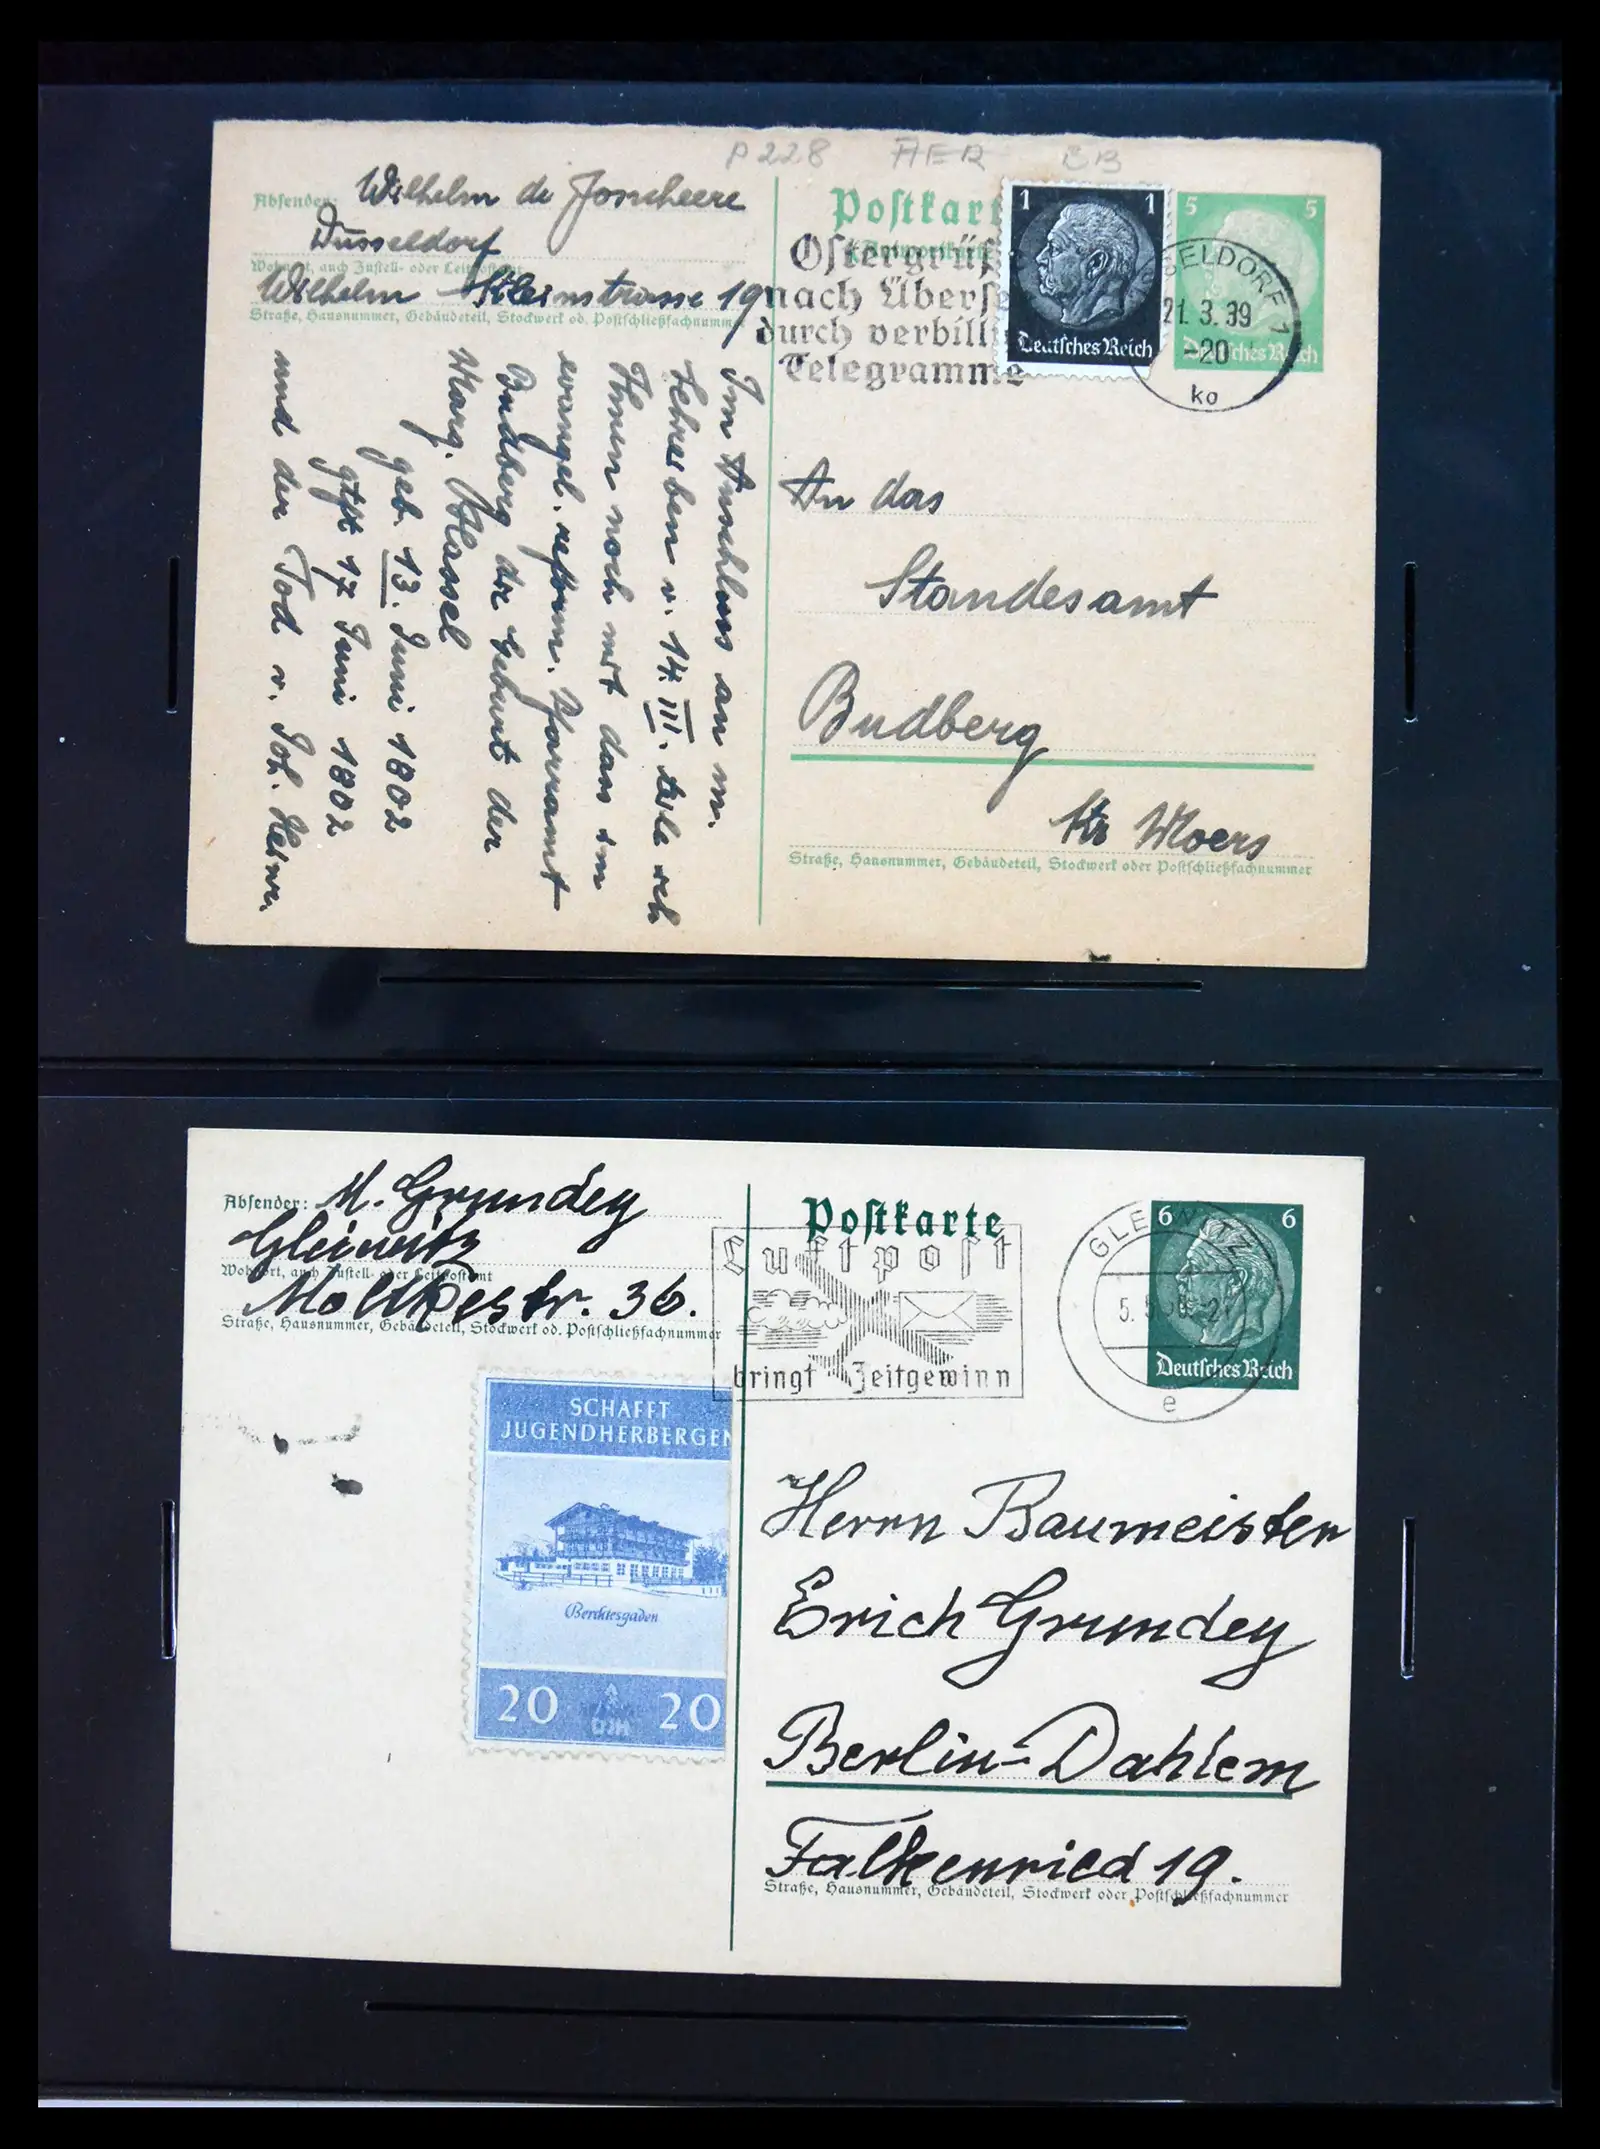 P 228 HER BB
Absender: Wilhelm de Joncheere
Düsseldorf
Wohnort, auch Zustell- oder Leitpostamt
Wilhelm Kleinstrasse 19
Straße, Hausnummer, Gebäudeteil, Stockwerk od. Postschließfachnummer
Im Anschluss an m.
Schreiben v. 14. III. teile ich
Ihnen noch mit dass im
evangel. reform. Pfarramt
Budberg die Geburt der
Marg. Hassel
geb. 13. Juni 1802
gtft 17 Juni 1802
und der Tod v. Joh. Heinr.
Postkart
Antwortkarte
Ostergrüß
nach Überse
durch verbilli
Telegramme
1 1
Deutsches Reich
5 5
Deutsches Reich
SSELDORF 1
21.3.39
-20
ko
An das
Standesamt
Budberg
Kr Moers
Straße, Hausnummer, Gebäudeteil, Stockwerk oder Postschließfachnummer
Absender: M. Grundey
Gleiwitz
Wohnort, auch Zustell- oder Leitpostamt
Moltkestr. 36.
Straße, Hausnummer, Gebäudeteil, Stockwerk od. Postschließfachnummer
SCHAFFT
JUGENDHERBERGEN
Berchtesgaden
20 DJH 20
Postkarte
Luftpost
bringt Zeitgewinn
GLEIWITZ
e
6 6
Deutsches Reich
Herrn Baumeister
Erich Grundey
Berlin-Dahlem
Falkenried 19.
Straße, Hausnummer, Gebäudeteil, Stockwerk oder Postschließfachnummer